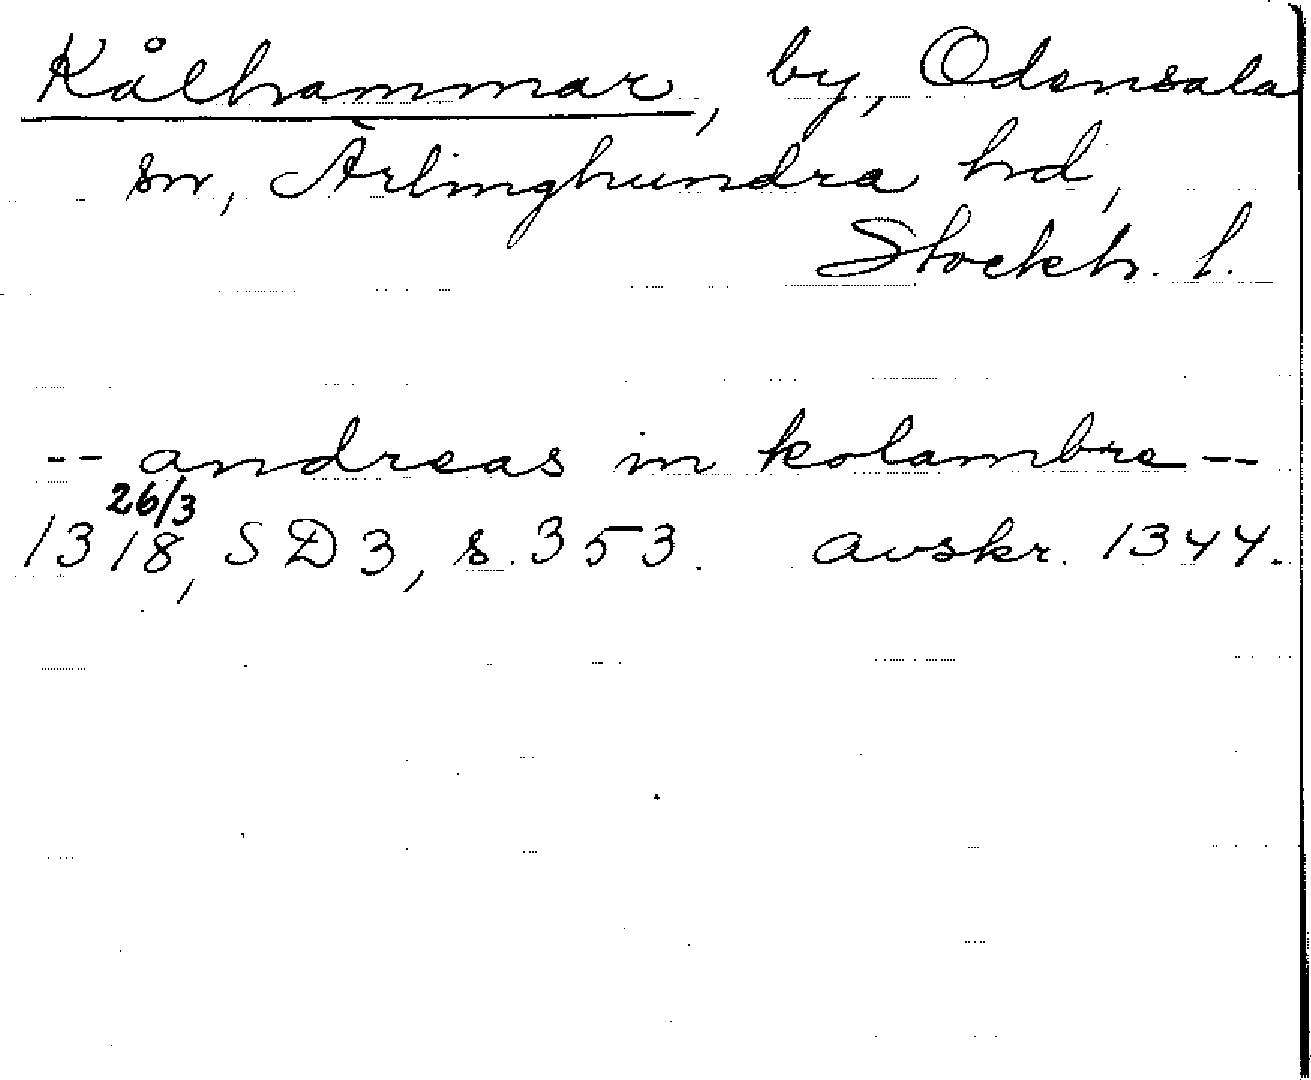 Kålhammar, by, Odensala
sn, Ärlinghundra hd,
Stockh. l.
-- andreas in kolambre --
26/3
1318, SD 3, s. 353. avskr. 1344.